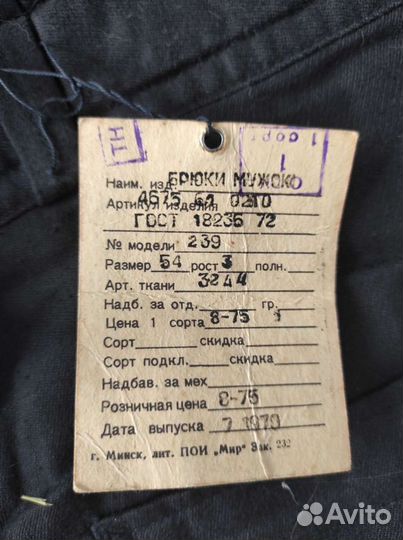 ТН
1 СОРТ
1
Наим. изд. БРЮКИ МУЖСК
Артикул изделия
ГОСТ 18236 72
№ модели 239
Размер 54 рост 3 полн.
Арт. ткани 3244
Надб. за отд. гр.
Цена 1 сорта 8-75
Сорт скидка
Сорт подкл. скидка
Надбав. за мех
Розничная цена 8-75
Дата выпуска 7 1979
г. Минск, лит. ПОИ „Мир" Зак. 232
Avito